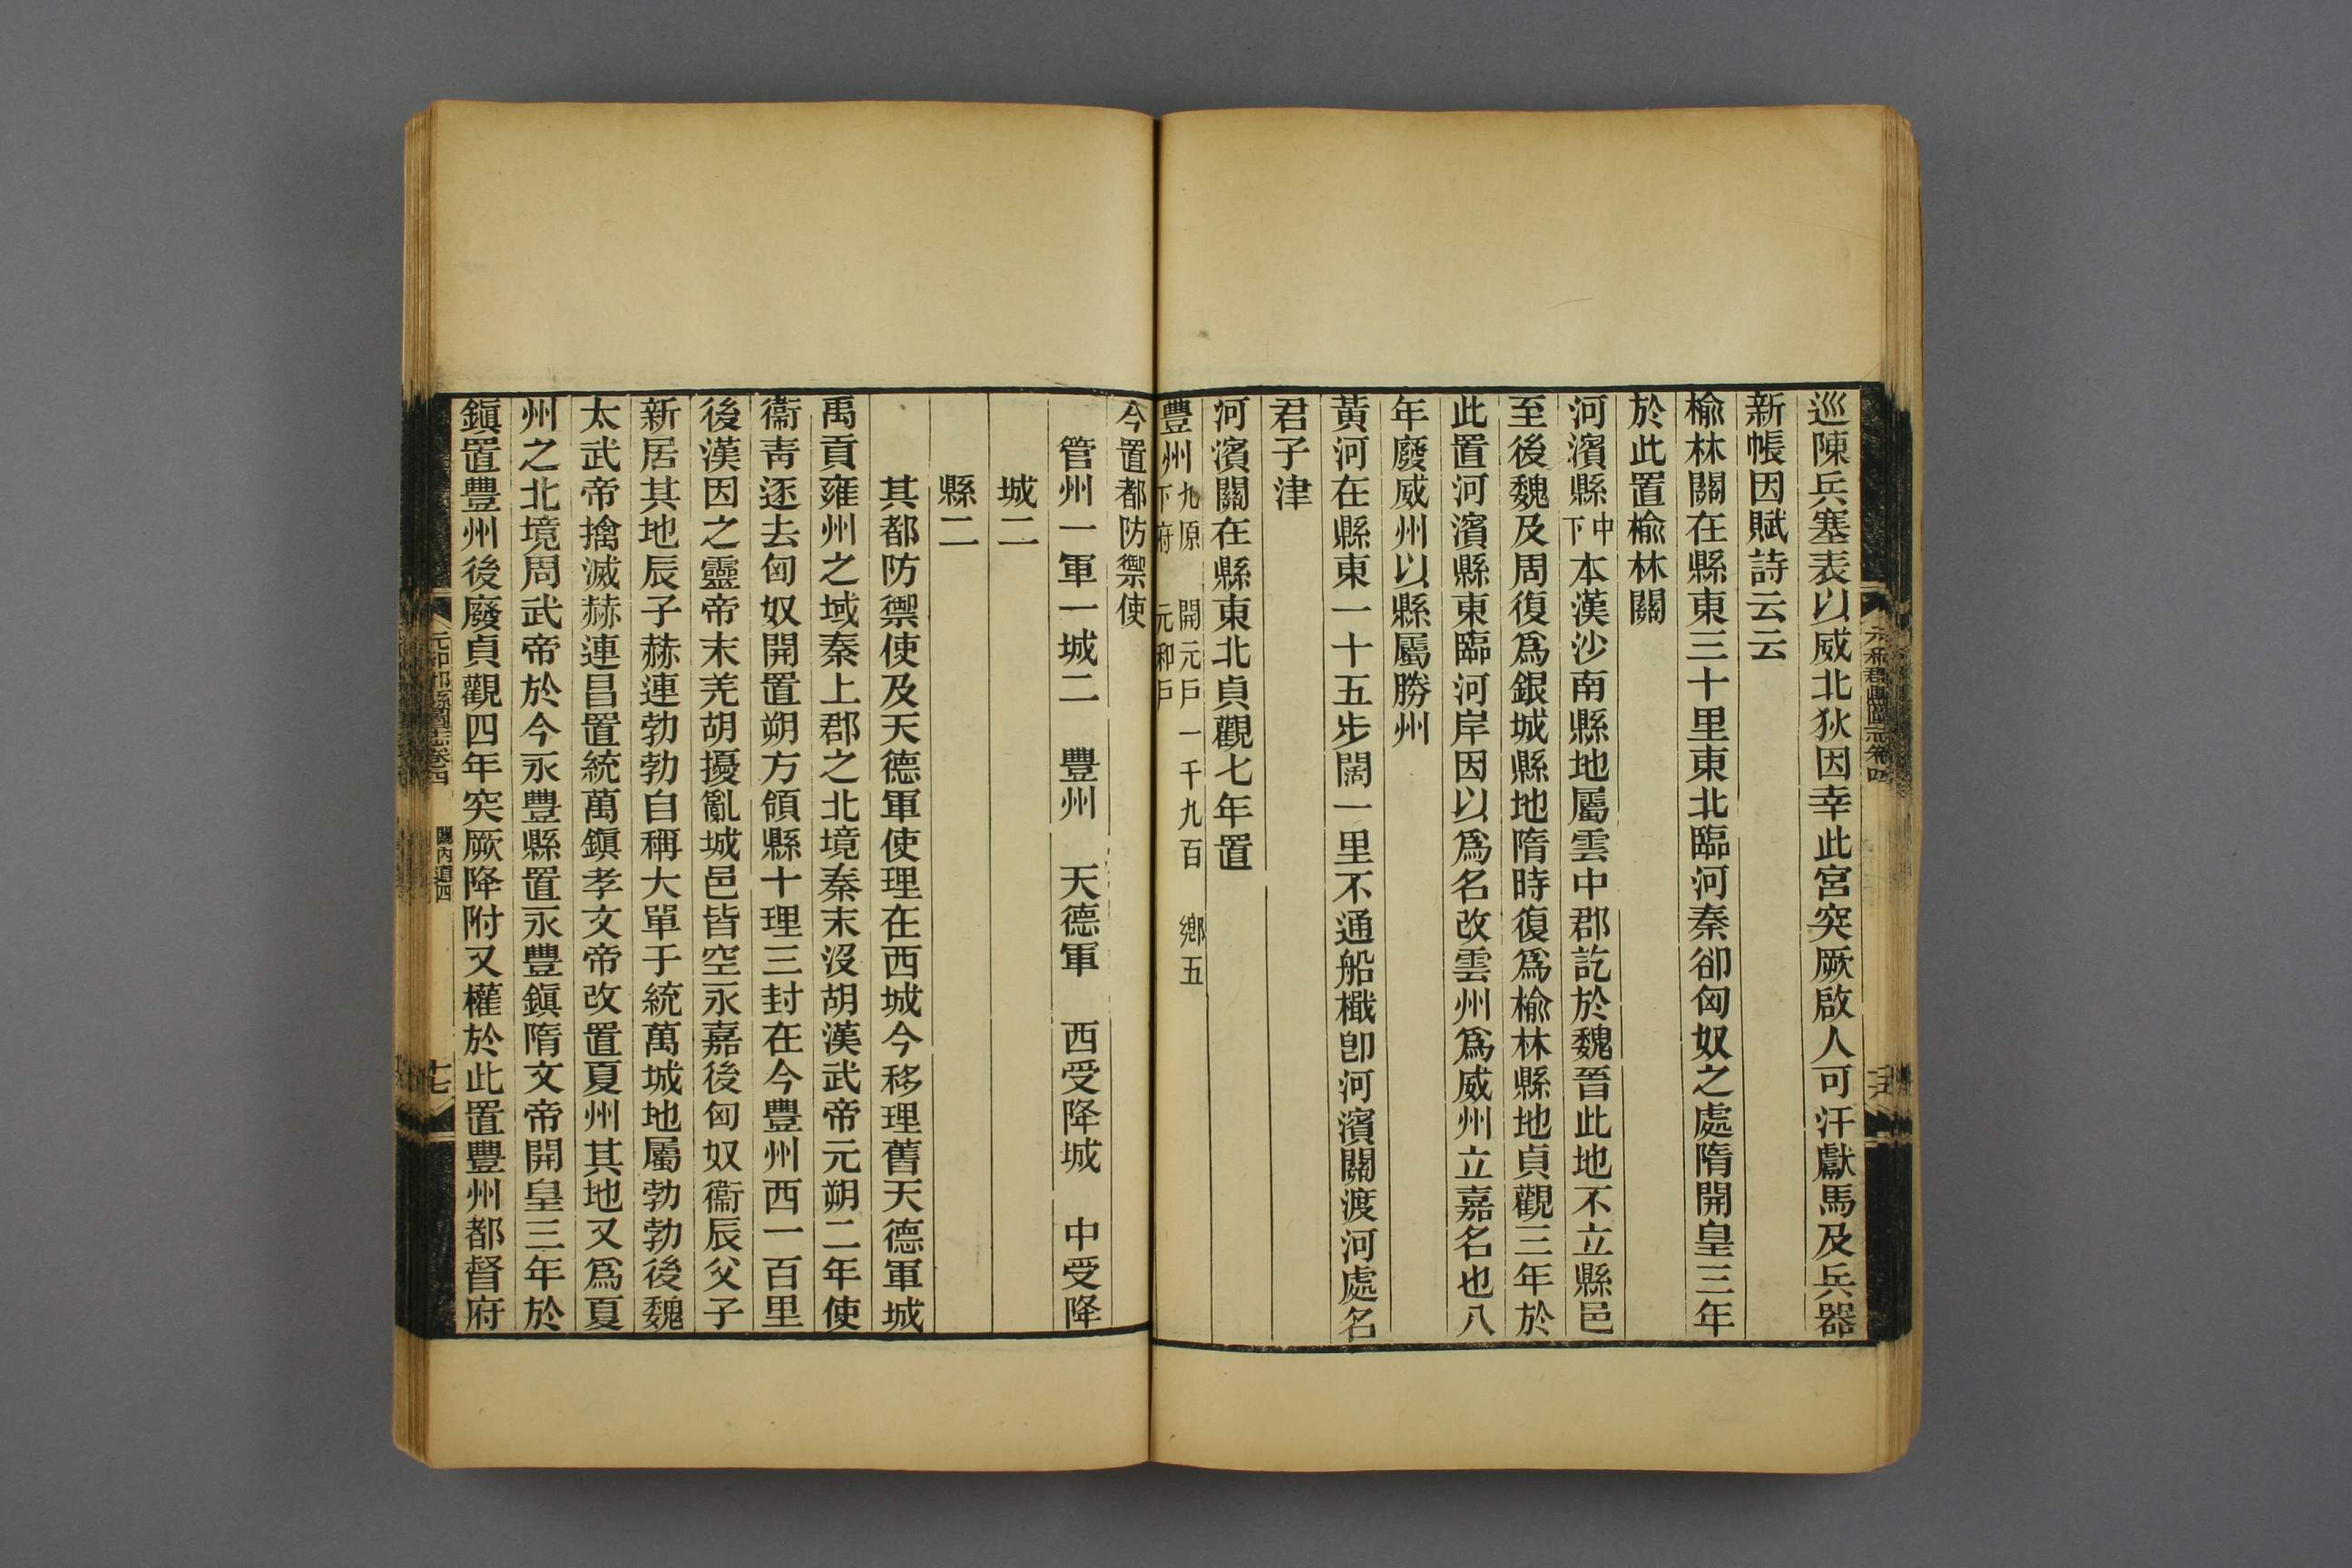 巡陳兵塞表以威北狄因幸此宮突厥啟人可汗獻馬及兵器
新帳因賦詩云云
榆林關在縣東三十里東北臨河秦卻匈奴之處隋開皇三年
於此置榆林關
河濱縣中下本漢沙南縣地屬雲中郡訖於魏晉此地不立縣邑
至後魏及周復爲銀城縣地隋時復爲榆林縣地貞觀三年於
此置河濱縣東臨河岸因以爲名改雲州爲威州立嘉名也八
年廢威州以縣屬勝州
黃河在縣東一十五步闊一里不通船檝卽河濱關渡河處名
君子津
河濱關在縣東北貞觀七年置
豐州九原下府 開元戸一千九百 鄉五
元和戸
今置都防禦使
管州一軍一城二 豐州 天德軍 西受降城 中受降
城二
縣二
其都防禦使及天德軍使理在西城今移理舊天德軍城
禹貢雍州之域秦上郡之北境秦末沒胡漢武帝元朔二年使
衞靑逐去匈奴開置朔方領縣十理三封在今豐州西一百里
後漢因之靈帝末羌胡擾亂城邑皆空永嘉後匈奴衞辰父子
新居其地辰子赫連勃勃自稱大單于統萬城地屬勃勃後魏
太武帝擒滅赫連昌置統萬鎭孝文帝改置夏州其地又爲夏
州之北境周武帝於今永豐縣置永豐鎭隋文帝開皇三年於
鎭置豐州後廢貞觀四年突厥降附又權於此置豐州都督府
元和郡縣圖志卷四 關內道四
十七